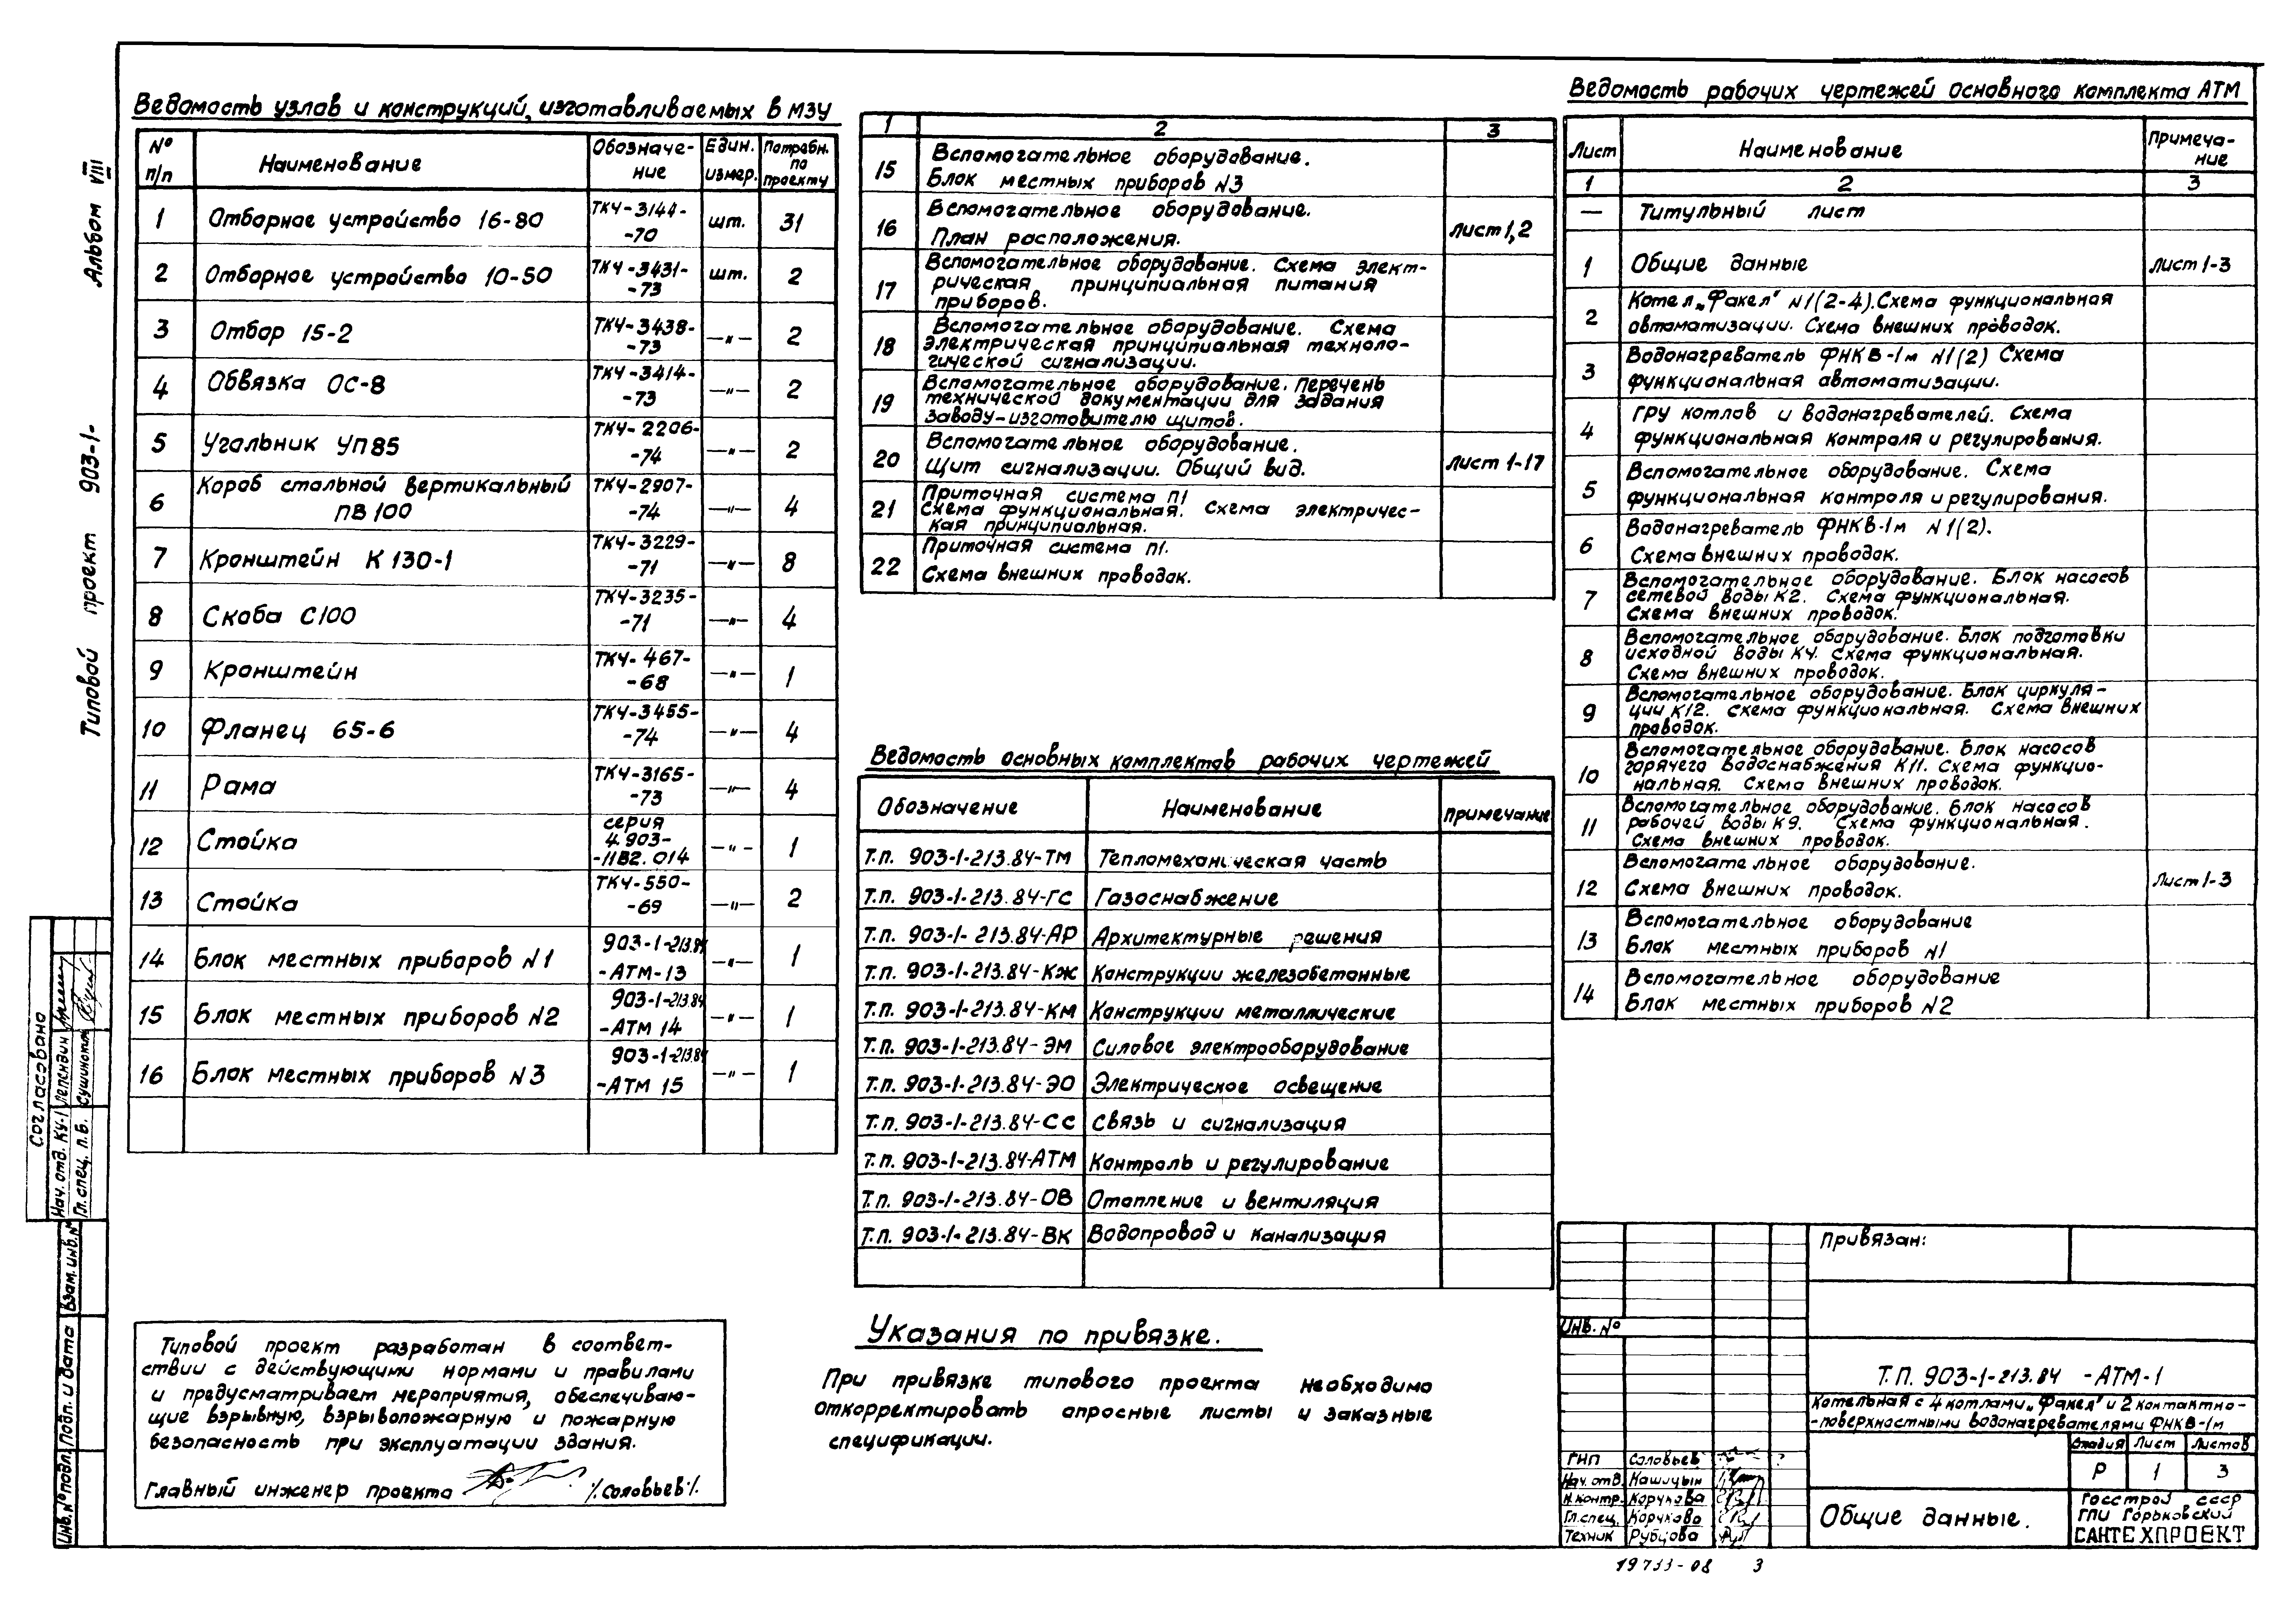 Альбом VIII
Типовой проект 903-1-
Согласовано
Нач. отд. КУ-1 Лепендин
Гл. спец. п.в. Сушинот
Взам. инв. №
Подп. и дата
Инв. № подл.
Ведомость узлов и конструкций, изготавливаемых в МЗУ
№ п/п Наименование Обозначе-ние Един. измер. Потребн. по проекту
1 Отборное устройство 16-80 ТКЧ-3144--70 шт. 31
2 Отборное устройство 10-50 ТКЧ-3431--73 шт. 2
3 Отбор 15-2 ТКЧ-3438--73 —"— 2
4 Обвязка ОС-8 ТКЧ-3414--73 —"— 2
5 Угольник УП85 ТКЧ-2206--74 —"— 2
6 Короб стальной вертикальный ПВ100 ТКЧ-2907--74 —"— 4
7 Кронштейн К130-1 ТКЧ-3229--71 —"— 8
8 Скоба С100 ТКЧ-3235--71 —"— 4
9 Кронштейн ТКЧ-467--68 —"— 1
10 Фланец 65-6 ТКЧ-3455--74 —"— 4
11 Рама ТКЧ-3165--73 —"— 4
12 Стойка серия 4.903--11В2.014 —"— 1
13 Стойка ТКЧ-550--69 —"— 2
14 Блок местных приборов N1 903-1-213.84-АТМ-13 —"— 1
15 Блок местных приборов N2 903-1-213.84-АТМ 14 —"— 1
16 Блок местных приборов N3 903-1-213.84-АТМ 15 —"— 1
Типовой проект разработан в соответ-
ствии с действующими нормами и правилами
и предусматривает мероприятия, обеспечиваю-
щие взрывную, взрывопожарную и пожарную
безопасность при эксплуатации здания.
Главный инженер проекта /Соловьев/.
1 2 3
15 Вспомогательное оборудование.
Блок местных приборов N3
16 Вспомогательное оборудование.
План расположения. Лист 1,2
17 Вспомогательное оборудование. Схема элект-
рическая принципиальная питания
приборов.
18 Вспомогательное оборудование. Схема
электрическая принципиальная техноло-
гической сигнализации.
19 Вспомогательное оборудование. Перечень
технической документации для задания
заводу-изготовителю щитов.
20 Вспомогательное оборудование.
Щит сигнализации. Общий вид. Лист 1-17
21 Приточная система П1
Схема функциональная. Схема электричес-
кая принципиальная.
22 Приточная система П1.
Схема внешних проводок.
Ведомость основных комплектов рабочих чертежей
Обозначение Наименование Примечание
Т.п. 903-1-213.84-ТМ Тепломеханическая часть
Т.п. 903-1-213.84-ГС Газоснабжение
Т.п. 903-1-213.84-АР Архитектурные решения
Т.п. 903-1-213.84-КЖ Конструкции железобетонные
Т.п. 903-1-213.84-КМ Конструкции металлические
Т.п. 903-1-213.84-ЭМ Силовое электрооборудование
Т.п. 903-1-213.84-ЭО Электрическое освещение
Т.п. 903-1-213.84-СС Связь и сигнализация
Т.п. 903-1-213.84-АТМ Контроль и регулирование
Т.п. 903-1-213.84-ОВ Отопление и вентиляция
Т.п. 903-1-213.84-ВК Водопровод и канализация
Указания по привязке.
При привязке типового проекта необходимо
откорректировать опросные листы и заказные
спецификации.
Ведомость рабочих чертежей основного комплекта АТМ
Лист Наименование Примеча-ние
1 2 3
— Титульный лист
1 Общие данные Лист 1-3
2 Котел „Факел" N1(2-4). Схема функциональная
автоматизации. Схема внешних проводок.
3 Водонагреватель ФНКВ-1м N1(2) Схема
функциональная автоматизации.
4 ГРУ котлов и водонагревателей. Схема
функциональная контроля и регулирования.
5 Вспомогательное оборудование. Схема
функциональная контроля и регулирования.
6 Водонагреватель ФНКВ-1м N1(2).
Схема внешних проводок.
7 Вспомогательное оборудование. Блок насосов
сетевой воды К2. Схема функциональная.
Схема внешних проводок.
8 Вспомогательное оборудование. Блок подготовки
исходной воды К4. Схема функциональная.
Схема внешних проводок.
9 Вспомогательное оборудование. Блок циркуля-
ции К12. Схема функциональная. Схема внешних
проводок.
10 Вспомогательное оборудование. Блок насосов
горячего водоснабжения К11. Схема функцио-
нальная. Схема внешних проводок.
11 Вспомогательное оборудование. Блок насосов
рабочей воды К9. Схема функциональная.
Схема внешних проводок.
12 Вспомогательное оборудование.
Схема внешних проводок. Лист 1-3
13 Вспомогательное оборудование
Блок местных приборов N1
14 Вспомогательное оборудование
Блок местных приборов N2
Привязан:
Инв. №
Т.П. 903-1-213.84 -АТМ-1
Котельная с 4 котлами „Факел" и 2 контактно-
-поверхностными водонагревателями ФНКВ-1м
Стадия Лист Листов
Р 1 3
ГИП Соловьев
Нач. отд. Кашицын
Н. контр. Корчкова
Гл. спец. Корчкова
Техник Рубцова
Общие данные.
Госстрой СССР
ГПИ Горьковский
САНТЕХПРОЕКТ
19733-08 3